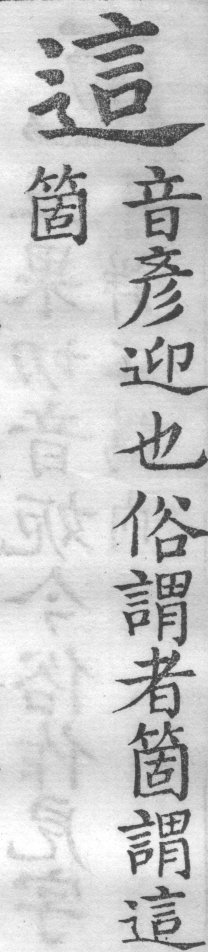 這
音彥迎也俗謂者箇謂這
箇